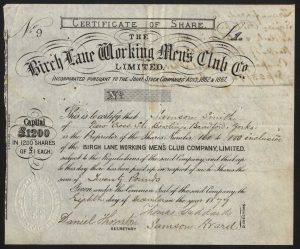 CERTIFICATE OF SHARE.
No 9
THE
Birch Lane Working Men's Club Co.
LIMITED.
INCORPORATED PURSUANT TO THE JOINT STOCK COMPANIES ACTS, 1862 & 1867.
Capital
£1200
IN 1200 SHARES
OF £1 EACH.
This is to certify that Samson Smith
of New Cross St. Bradford Yorks
is the Proprietor of the Shares Number inclusive
OF THE BIRCH LANE WORKING MEN'S CLUB COMPANY, LIMITED,
subject to the Regulations of the said Company, and that up
to this day there has been paid up in respect of such Shares the
sum of Twenty Pounds
Given under the Common Seal of the said Company, the
day of 1877
Daniel
SECRETARY
Samson